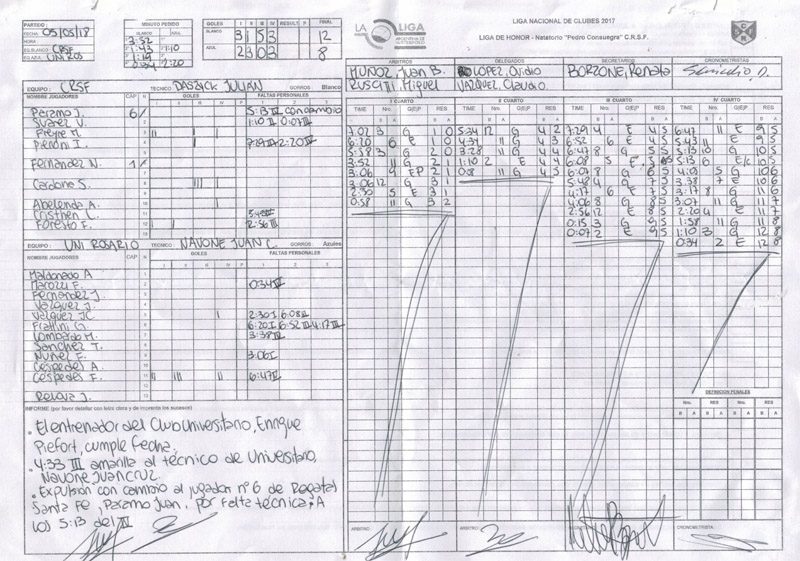 PARTIDO
FECHA 05/05/18
HORA
EQ. BLANCO CRSF
EQ. AZUL UNI ROS
MINUTO PEDIDO
BLANCO
3:52
1:43 1:10
AZUL
1:19
0:34 1:20
GOLES I II III IV RESULT. P FINAL
BLANCO 3 1 5 3 12
AZUL 2 3 0 3 8
LA LIGA
ARGENTINA DE WATERPOLO
LIGA NACIONAL DE CLUBES 2017
LIGA DE HONOR - Natatorio "Pedro Consuegra" C.R.S.F.
EQUIPO: CRSF TECNICO DABZICK JULIAN GORROS Blanco
NOMBRE JUGADORES CAP N GOLES FALTAS PERSONALES
I II III IV P 1 2 3
Paramo J. 6 5:13 IV con cambio
Suarez V. 1:10 II 0:07 III
Freyre M.
Pienoni I. 7:29 III 2:20 IV
Fernandez N. 1
Cardone S.
Abelendo A.
Cristhen L.
Foresto F. 2:56 III
EQUIPO: UNI ROSARIO TECNICO NAVONE JUAN C. GORROS Azules
NOMBRE JUGADORES CAP N GOLES FALTAS PERSONALES
Maldonado A
Marozzi F. 0:34 IV
Fernandez J.
Vazquez J.
Vazquez JC 2:30 I 6:08 III
Frattini G. 6:20 I 6:52 III 4:17 III
Lombardo M. 3:38 IV
Sanchez T.
Nuñez F. 3:06 I
Cespedes A
Cespedes F. 6:47 IV
INFORME (por favor detallar con letra clara y de imprenta los sucesos)
• El entrenador del Club Universitario, Enrique
Piefort, cumple fecha.
• 4:33 III amarilla al técnico de Universitario
Navone Juan Cruz.
• Expulsion con cambio al jugador nº 6 de Regatas
Santa Fe, Paramo Juan, por falta técnica; A
los 5:13 del IV
ARBITROS DELEGADOS SECRETARIOS CRONOMETRISTAS
MUÑOZ, Juan B. LOPEZ, Ovidio BORZONE, Renata
RUSCITTI, Miguel VAZQUEZ, Claudio
I CUARTO
TIME Nro. G/E/P RES
B A B A
7:02 3 G 1 0
6:20 6 E 1 0
5:58 3 G 2 0
3:52 11 G 2 1
3:06 9 EP 2 1
3:06 12 G 3 1
2:30 5 E 3 1
0:58 11 G 3 2
II CUARTO
TIME Nro. G/E/P RES
B A B A
5:34 12 G 4 2
4:31 11 G 4 3
3:28 11 G 4 4
1:10 2 E 4 4
0:58 11 G 4 5
III CUARTO
TIME Nro. G/E/P RES
B A B A
7:29 4 E 4 5
6:52 6 E 4 5
6:47 8 G 5 5
6:08 5 E 5 5
6:07 8 G 6 5
5:48 4 G 7 5
4:17 6 E 7 5
4:06 8 G 8 5
2:56 12 E 8 5
0:15 3 G 9 5
0:07 2 E 9 5
IV CUARTO
TIME Nro. G/E/P RES
B A B A
6:47 11 E 9 5
5:43 11 E 9 5
5:13 10 G 10 5
5:13 6 E/C 10 5
4:09 5 G 10 6
3:38 7 E 10 6
3:17 8 G 11 6
3:07 11 G 11 7
2:20 4 E 11 7
1:58 11 G 11 8
1:10 3 G 12 8
0:34 2 E 12 8
DEFINICION PENALES
Nro. RES Nro. RES
B A B A B A B A
ARBITRO ARBITRO SECRETARIO CRONOMETRISTA